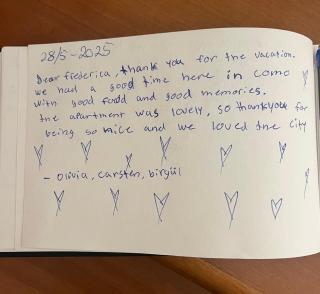 28/5-2025
Dear frederica, thank you for the vacation.
We had a good time here in Como
with good food and good memories.
the apartment was lovely, so thankyou for
being so nice and we loved the city
- Olivia, carsten, birgül